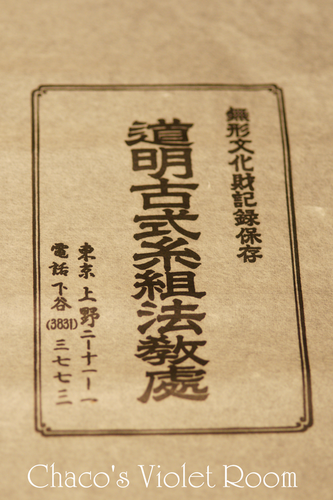 無形文化財記録保存
道明古式糸組法教處
東京上野二ー十一ー一
電話下谷(3831)三七七三
Chaco's Violet Room